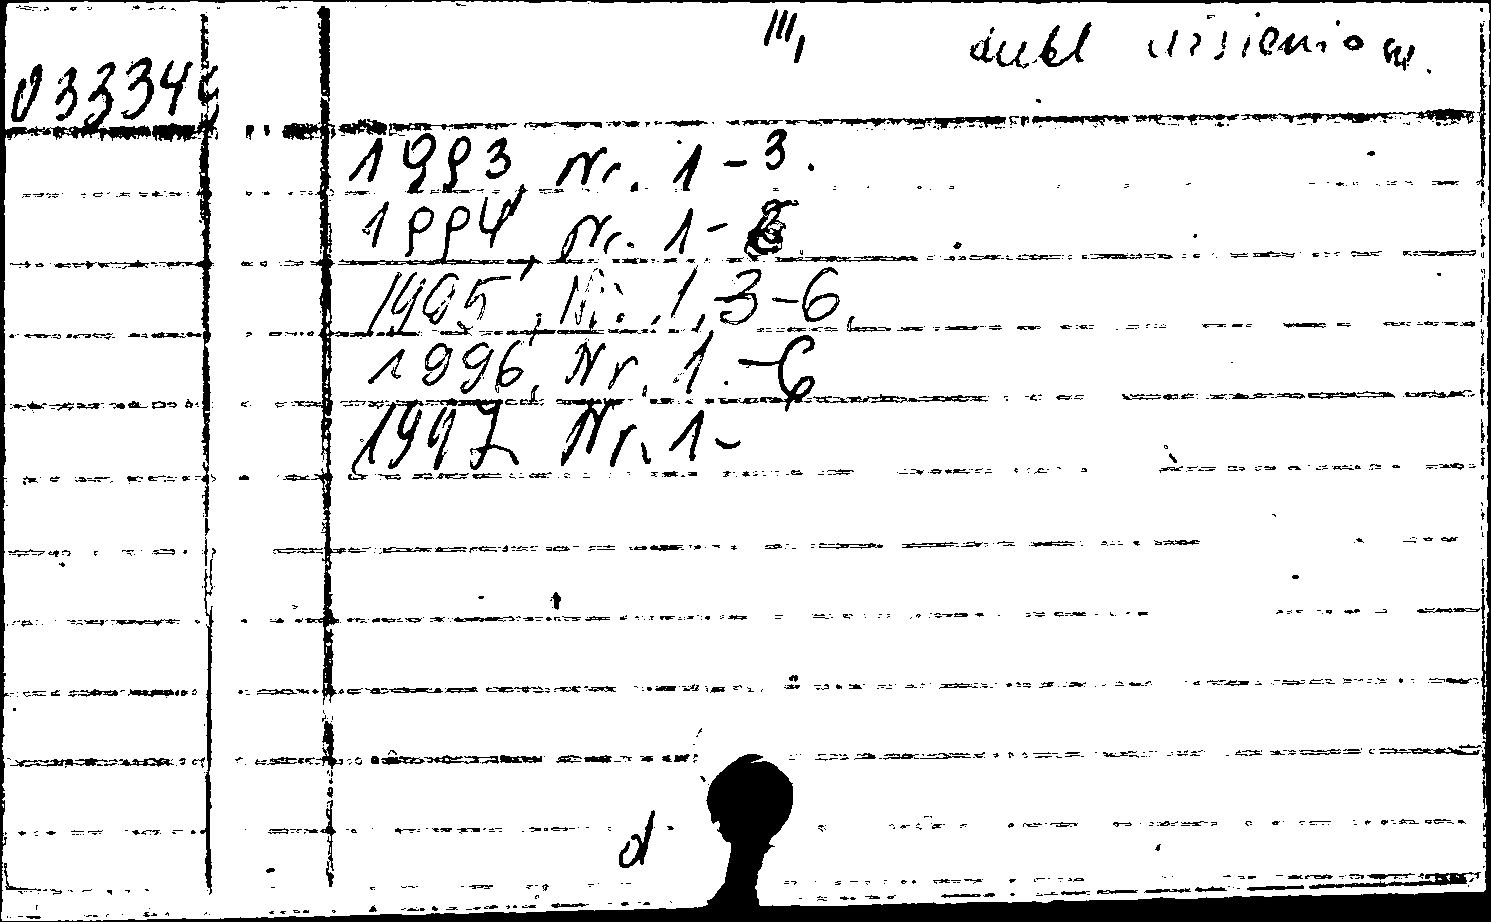 III,
dubl
03334
1993, Nr. 1-3.
1994, Nr. 1-
1995, Nr. 1, 3-6.
1996, Nr. 1.-6
1997 Nr. 1-
d